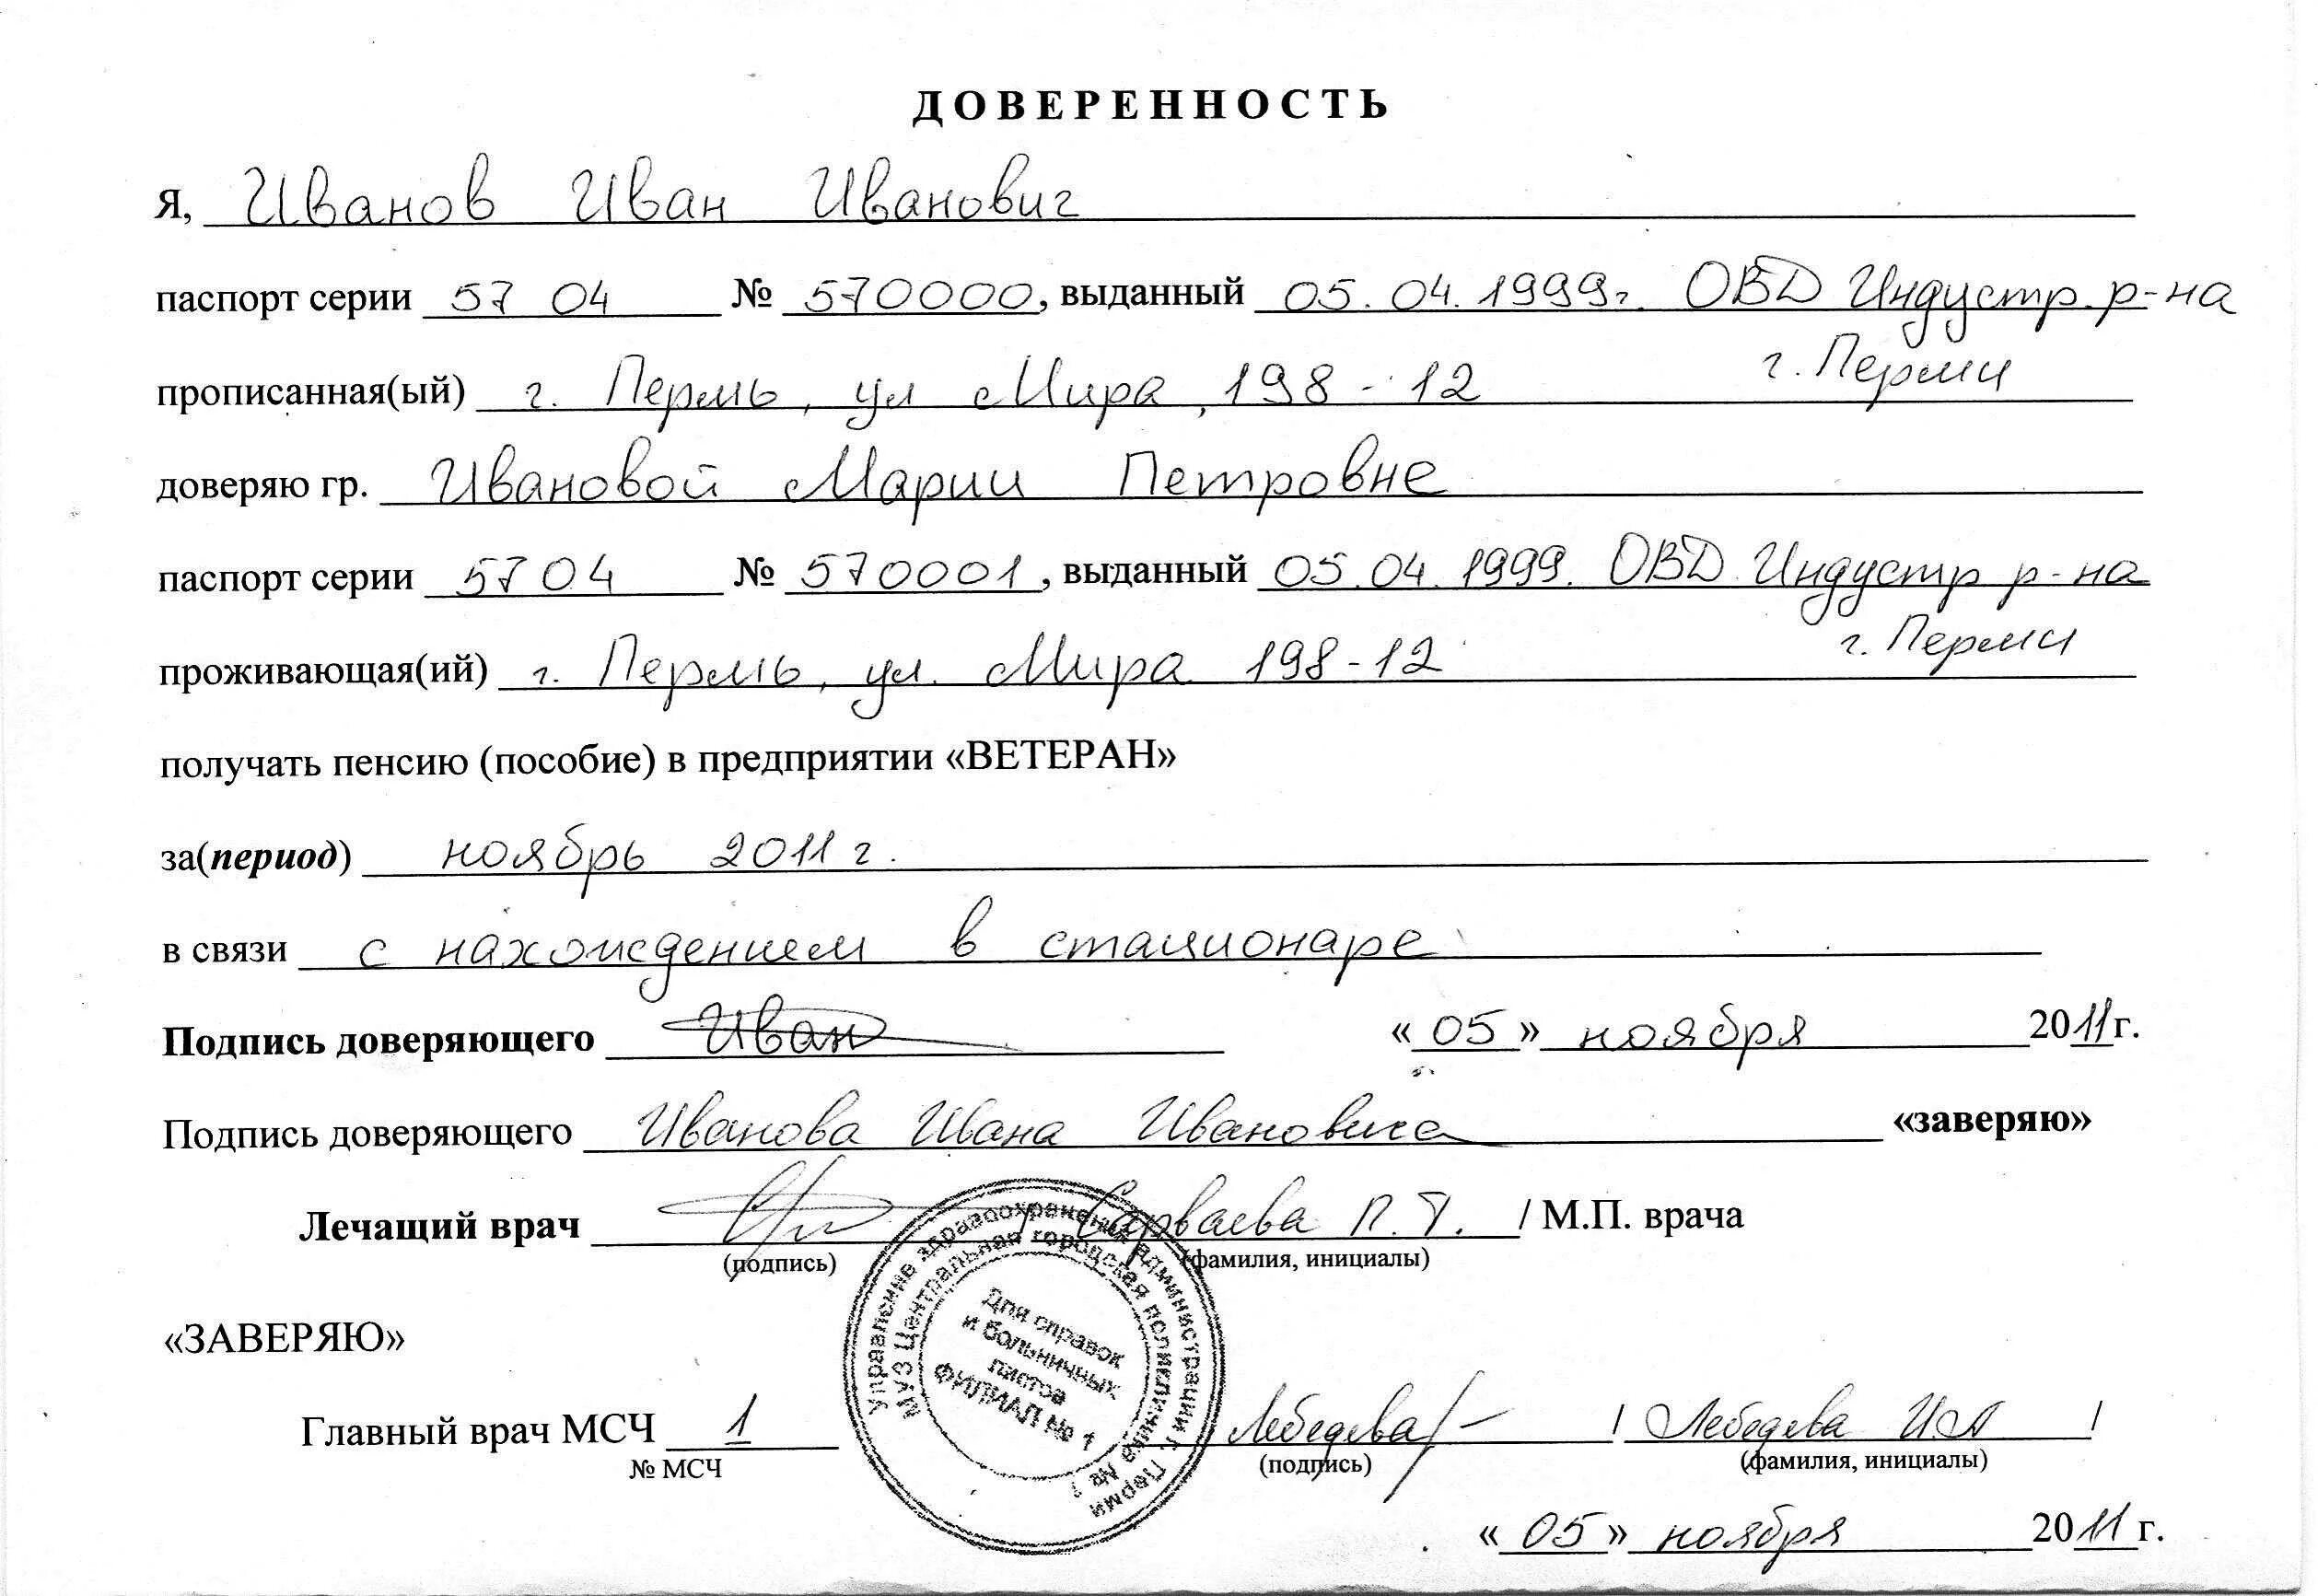 ДОВЕРЕННОСТЬ
Я, Иванов Иван Иванович
паспорт серии 57 04 № 570000, выданный 05.04.1999г. ОВД Индустр. р-на
г. Перми
прописанная(ый) г. Пермь, ул Мира, 198-12
доверяю гр. Ивановой Марии Петровне
паспорт серии 5704 № 570001, выданный 05.04.1999. ОВД Индустр р-на
г. Перми
проживающая(ий) г. Пермь, ул. Мира 198-12
получать пенсию (пособие) в предприятии «ВЕТЕРАН»
за(период) ноябрь 2011 г.
в связи с нахождением в стационаре
Подпись доверяющего Иван «05» ноября 2011г.
Подпись доверяющего Иванова Ивана Ивановича «заверяю»
Лечащий врач / П.Т. / М.П. врача
(подпись) (фамилия, инициалы)
Управление здравоохранения администрации г. Перми
МУЗ Центральная городская поликлиника №
Для справок
и больничных
листов
ФИЛИАЛ № 1
«ЗАВЕРЯЮ»
Главный врач МСЧ 1 Лебедева / Лебедева И.А /
№ МСЧ (подпись) (фамилия, инициалы)
«05» ноября 2011г.